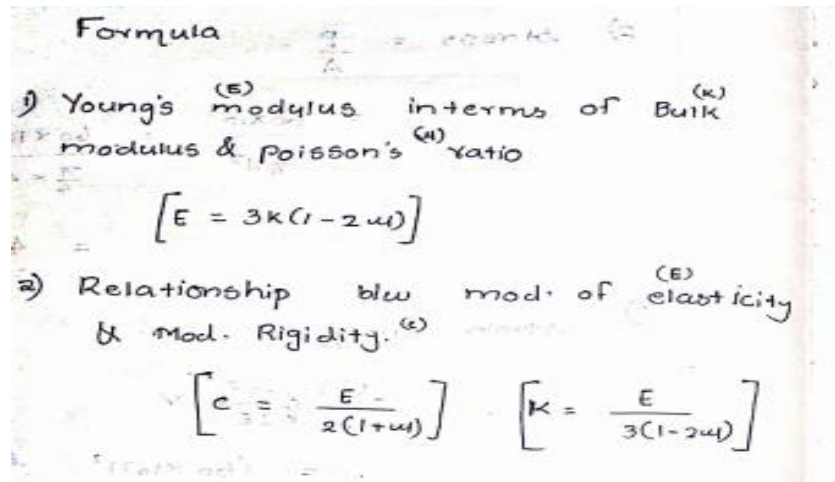 Formula
1) Young's modylus (E) interms of Bulk (K)
modulus & poisson's (μ) ratio
[E = 3K(1-2μ)]
2) Relationship b/w mod. of elasticity (E)
& Mod. Rigidity. (c)
[c = E / 2(1+μ)] [K = E / 3(1-2μ)]